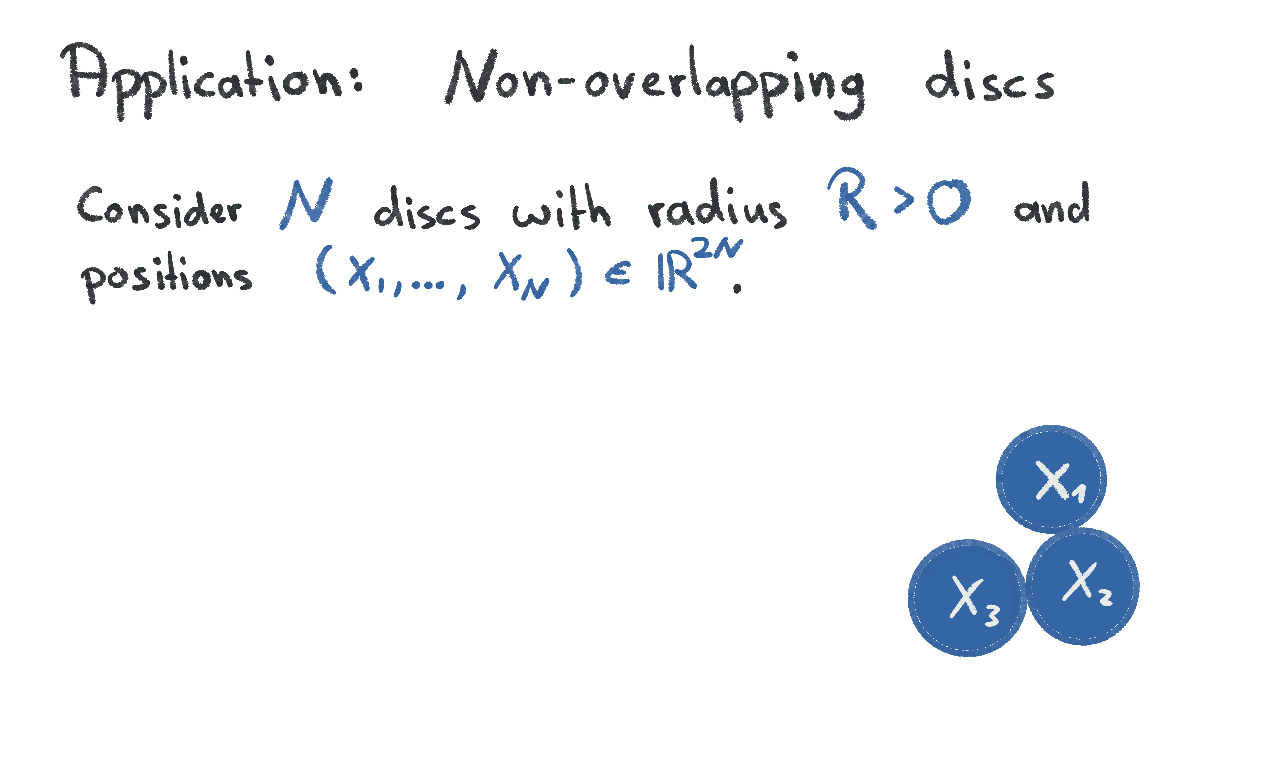 Application: Non-overlapping discs
Consider N discs with radius R > 0 and
positions (X₁,..., X_N) ∈ ℝ²ᴺ.
X₁
X₃
X₂